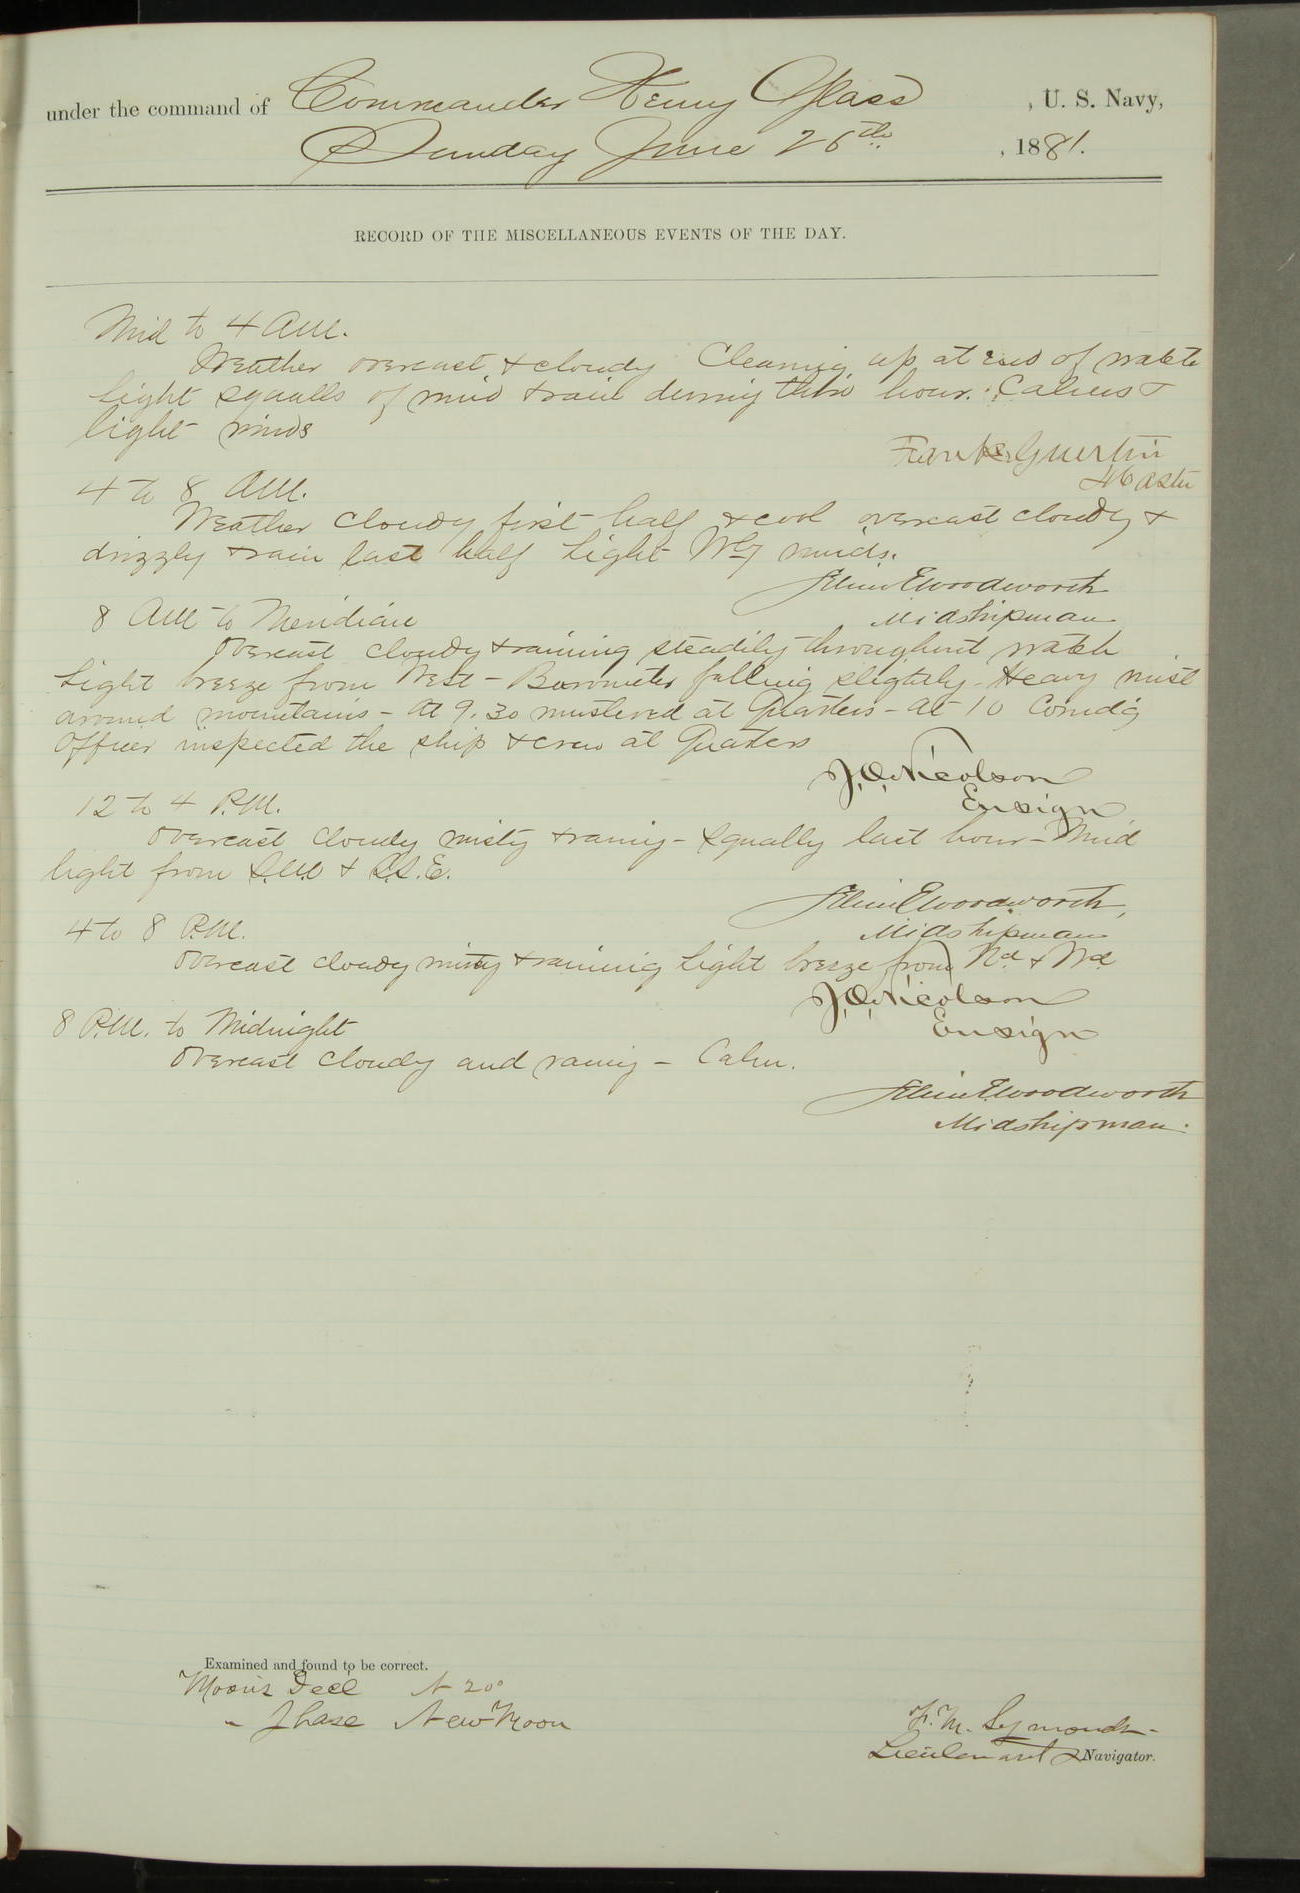 under the command of Commander Henry Glass, U. S. Navy,
Sunday June 26th, 1881.
RECORD OF THE MISCELLANEOUS EVENTS OF THE DAY.
Mid to 4 A.M.
Weather overcast & cloudy Clearing up at end of watch
light squalls of wind & rain during third hour. Calms &
light winds
Frank Guertin
Master
4 to 8 A.M.
Weather cloudy first half & cool overcast cloudy &
drizzly & rain last half Light Wly winds.
Selim E Woodworth
Midshipman
8 A.M. to Meridian
Overcast cloudy & raining steadily throughout watch
Light breeze from West - Barometer falling slightly - Heavy mist
around mountains - At 9.30 mustered at Quarters - at 10 Comd'g
Officer inspected the ship & crew at Quarters
J.O. Nicolson
Ensign
12 to 4 P.M.
Overcast cloudy misty & rainy - Squally last hour - Wind
light from S.W. & S.S.E.
Selim E Woodworth,
Midshipman
4 to 8 P.M.
Overcast cloudy misty & raining light breeze from Nd & Wd
J.O. Nicolson
Ensign
8 P.M. to Midnight
Overcast cloudy and rainy - Calm.
Selim E Woodworth
Midshipman.
Examined and found to be correct.
Moon's Decl N 20°
" Phase New Moon
F. M. Symonds
Lieutenant & Navigator.